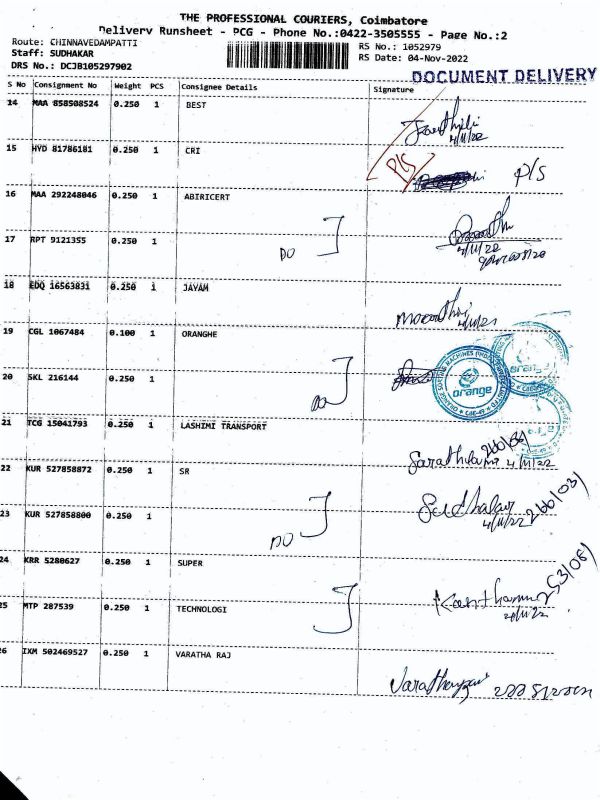 THE PROFESSIONAL COURIERS, Coimbatore
Delivery Runsheet - PCG - Phone No.:0422-3505555 - Page No.:2
Route: CHINNAVEDAMPATTI
Staff: SUDHAKAR
DRS No.: DCJB105297902
RS No.: 1052979
RS Date: 04-Nov-2022
DOCUMENT DELIVERY
S No Consignment No Weight PCS Consignee Details Signature
14 MAA 858508524 0.250 1 BEST
4/11/22
15 HYD 81786181 0.250 1 CRI
P/S
P/S
16 MAA 292248046 0.250 1 ABIRICERT
17 RPT 9121355 0.250 1
DO
4/11/22
18 EDQ 16563831 0.250 1 JAYAM
19 CGL 1067484 0.100 1 ORANGHE
orange
20 SKL 216144 0.250 1
DO
21 TCG 15041793 0.250 1 LASHIMI TRANSPORT
4/11/22
22 KUR 527858872 0.250 1 SR
Sudhakar
4/11/22
23 KUR 527858800 0.250 1
DO
24 KRR 5280627 0.250 1 SUPER
25 MTP 287539 0.250 1 TECHNOLOGI
26 IXM 502469527 0.250 1 VARATHA RAJ